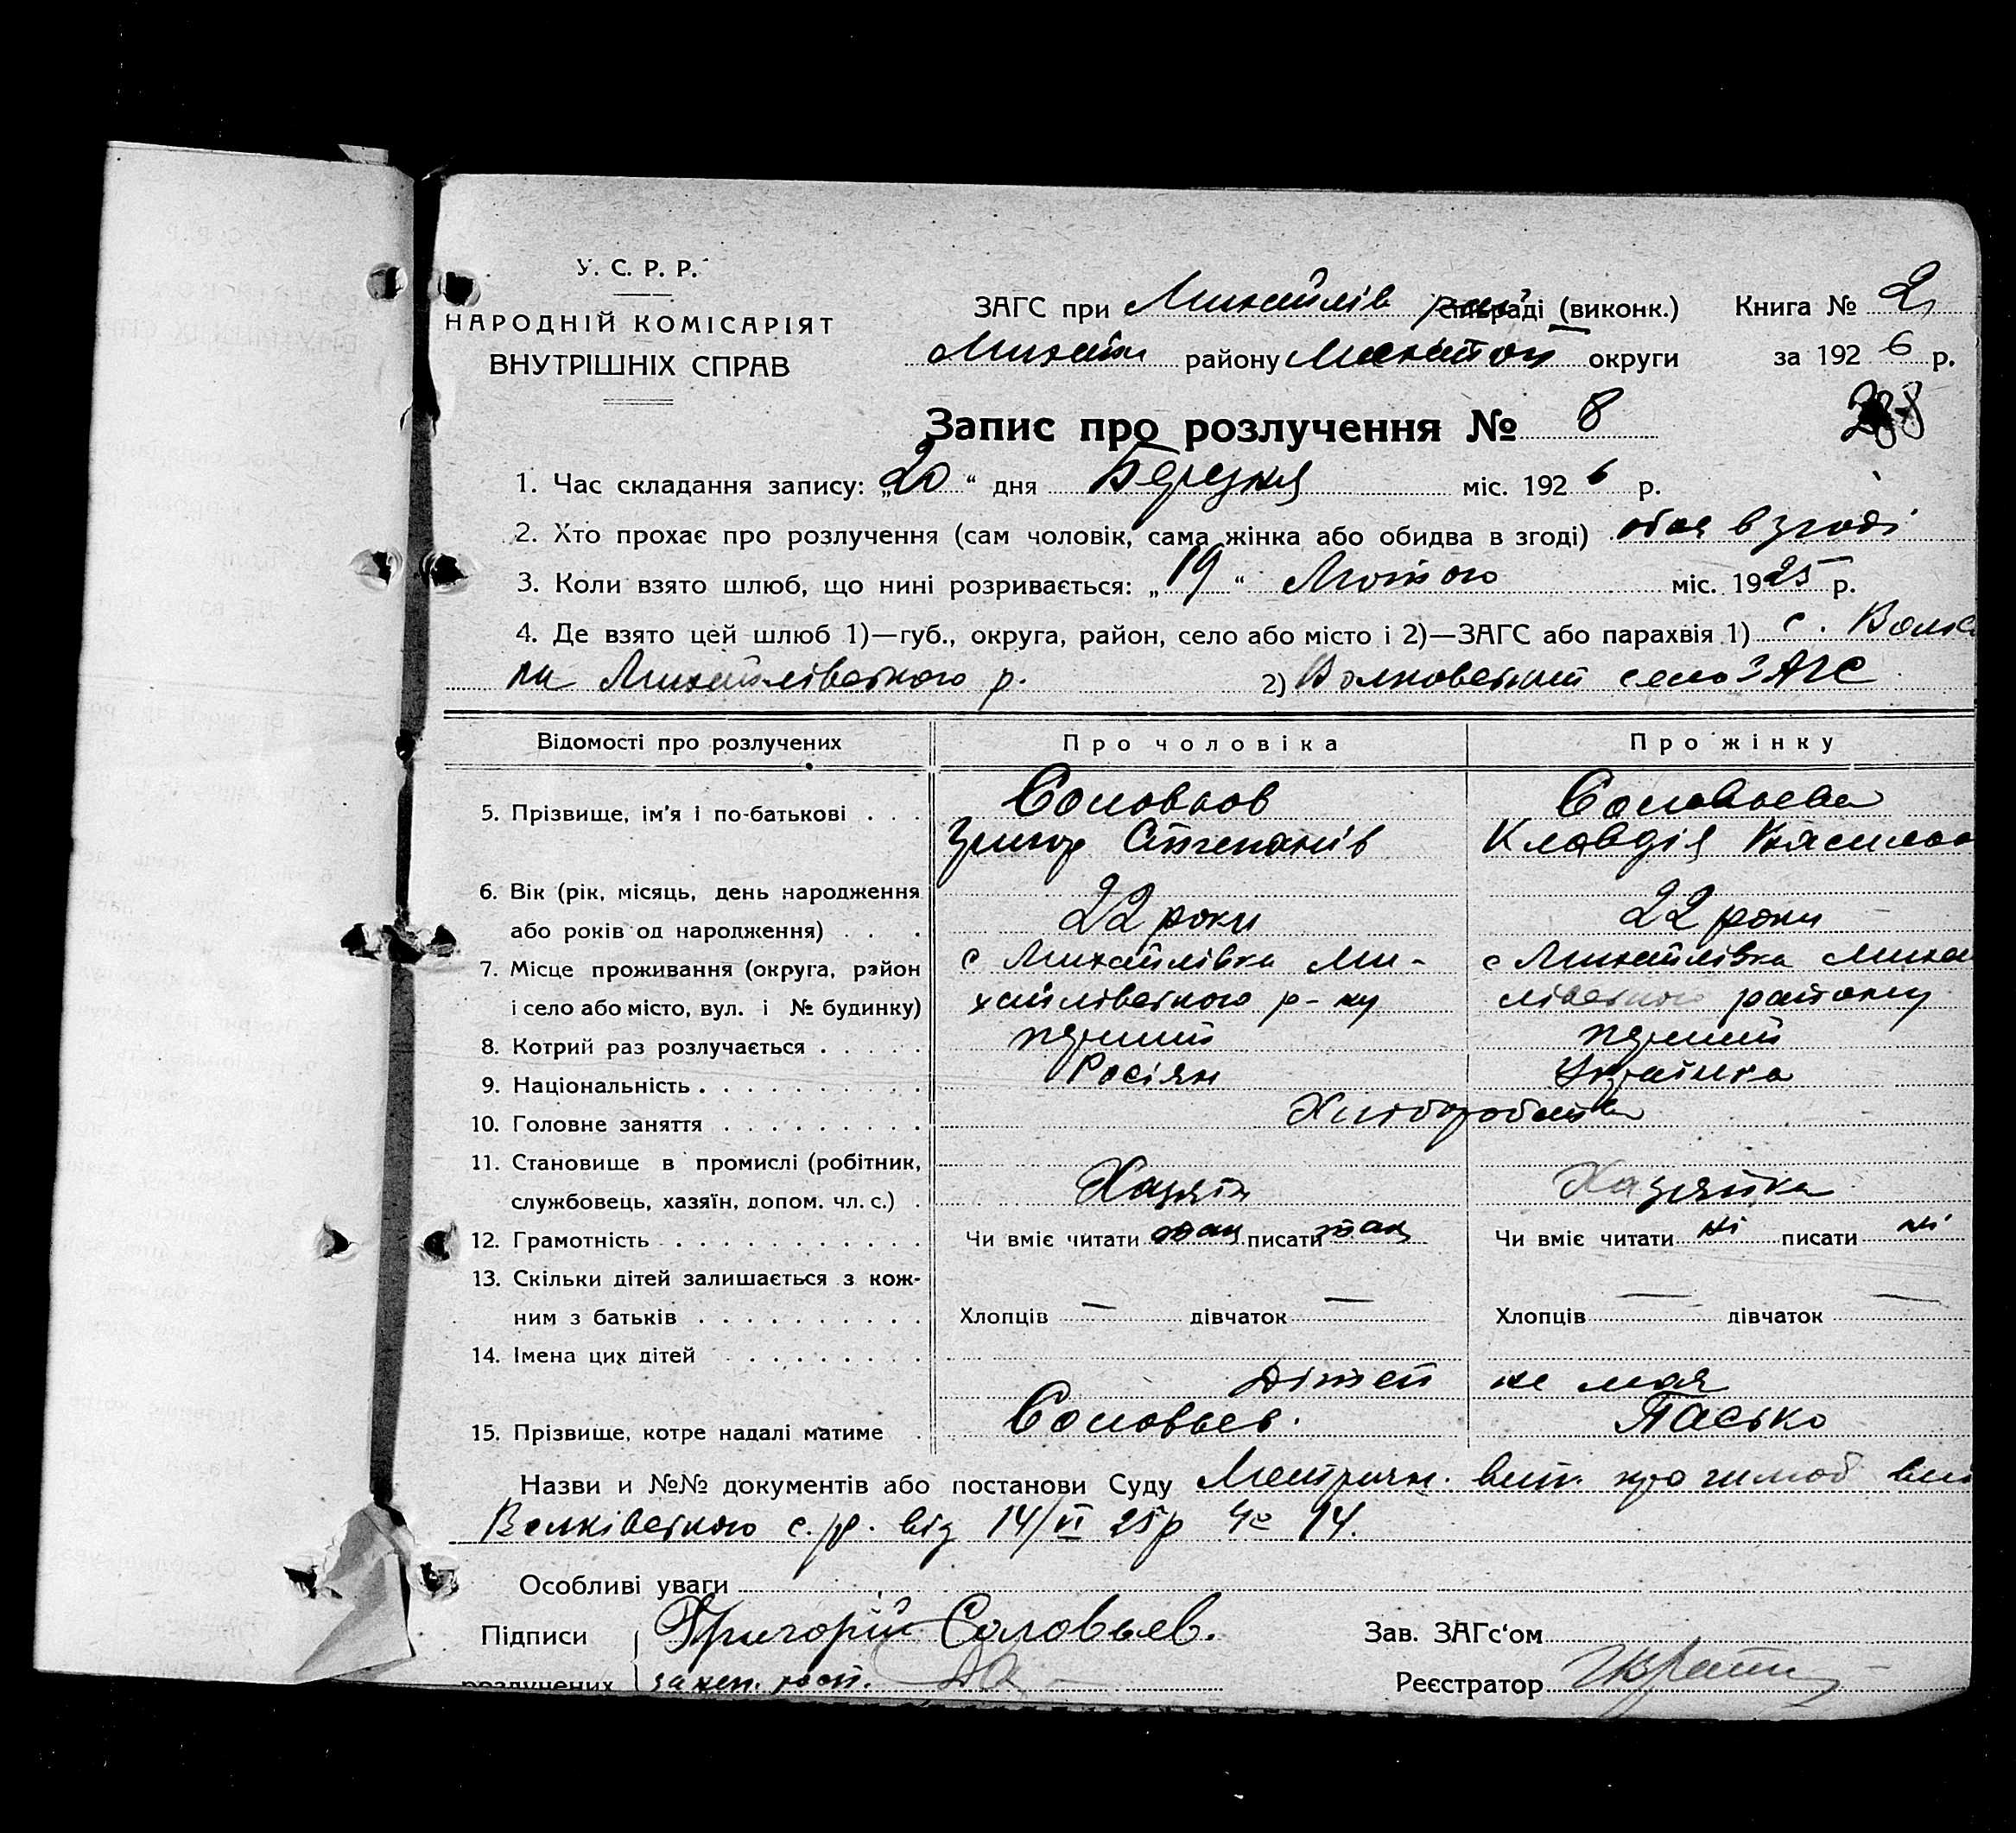 У. С. Р. Р.
НАРОДНІЙ КОМІСАРІЯТ
ВНУТРІШНІХ СПРАВ
ЗАГС при Михайлів раді (виконк.) Книга № 2
району округи за 1926 р.
Запис про розлучення № 8
288
1. Час складання запису: „20“ дня Березня міс. 1926 р.
2. Хто прохає про розлучення (сам чоловік, сама жінка або обидва в згоді) обоя в згоді
3. Коли взято шлюб, що нині розривається: „19“ Лютого міс. 1925 р.
4. Де взято цей шлюб 1)—губ., округа, район, село або місто і 2)—ЗАГС або парахвія 1) с.
Михайлівського р. 2) село ЗАГС
Відомості про розлучених Про чоловіка Про жінку
5. Прізвище, ім'я і по-батькові . . . Соловьов Соловьева
Григор Степанів Клавдія
6. Вік (рік, місяць, день народження
або років од народження) . . . 22 роки 22 роки
7. Місце проживання (округа, район с Михайлівка Ми- с Михайлівка Михай
і село або місто, вул. і № будинку) хайлівського р-ну лівського району
8. Котрий раз розлучається . . . . . перший перший
9. Національність . . . . . . . . . . Росіян Українка
10. Головне заняття . . . . . . . . . Хліборобства
11. Становище в промислі (робітник,
службовець, хазяїн, допом. чл. с.) . Хазяїн Хазяйка
12. Грамотність . . . . . . . . . . . Чи вміє читати так писати так Чи вміє читати ні писати ні
13. Скільки дітей залишається з кож-
ним з батьків . . . . . . . . . . Хлопців — дівчаток — Хлопців — дівчаток —
14. Імена цих дітей . . . . . . . . .
Дітей не мая
15. Прізвище, котре надалі матиме . Соловьев. Пасько
Назви и №№ документів або постанови Суду Метричн. вит. про шлюб
с.р. від 14/VI 25р № 14.
Особливі уваги
Підписи Григорій Соловьев. Зав. ЗАГс'ом
розлучених Реєстратор